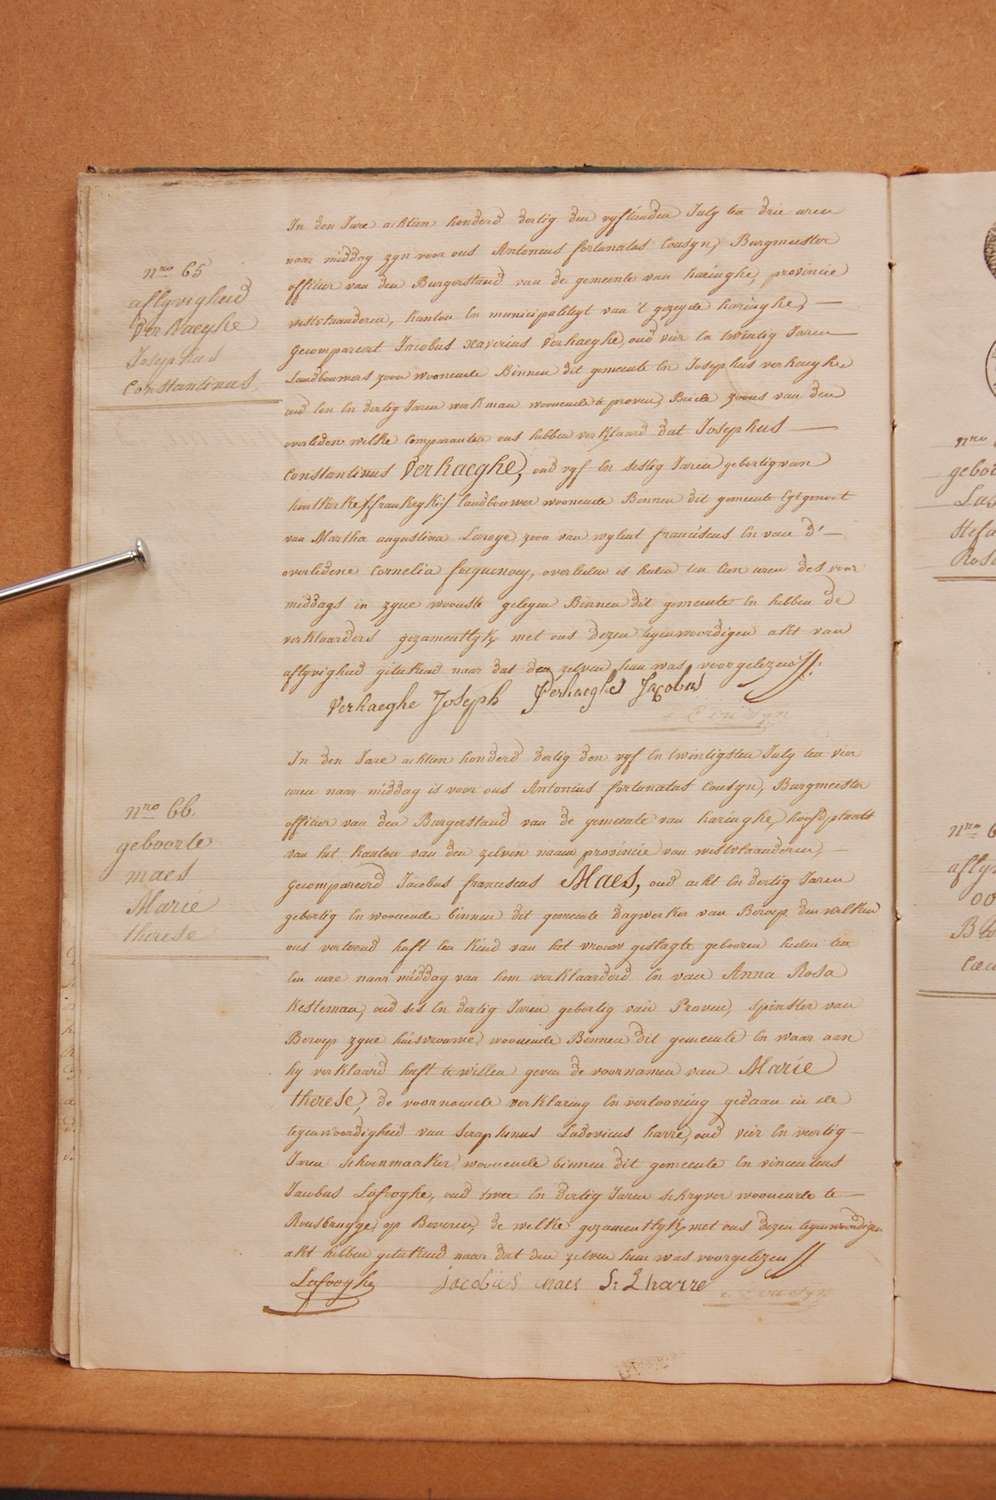 nro 65
aflyvigheid
Verhaeghe
Josephus
Constantinus
In den Jare achtien honderd dertig den vyfthienden July ten drie uren
naar middag zyn voor ons Antonius fortunatus Cousyn, Burgmeester
officier van den Burgerstand van de gemeente van haringhe, provincie
westvlaanderen, kanton en municipaliteyt van 't gezeyde haringhe, —
Gecompareert Jacobus xaverius Verhaeghe, oud vier en twintig Jaren —
Landbouwers zoon woonende Binnen dit gemeente en Josephus verhaeghe
oud een en dertig Jaren werkman woonende te proven, Beide zoons van den
overleden welke comparanten ons hebben verklaard dat Josephus —
Constantinus Verhaeghe, oud vyf en sestig Jaren gebortig van
houtkerke (frankryk) landbouwer woonende Binnen dit gemeente
van Martha augustina Leroye zoon van wylent franciscus en van d' —
overledene Cornelia focquenoey, overleden is heden ten tien uren des voor
middags in zyne wooninge gelegen Binnen dit gemeente en hebben de
verklaarders gezamentlyk met ons dezen tegenwoordigen akt van
aflyvigheid geteekend naar dat den zelven hun was voorgelezen
Verhaeghe Joseph Verhaeghe Jacobus
Cousyn
nro 66
geboorte
maes
Marie
therese
In den Jare achtien honderd dertig den vyf en twintigsten July ten vier
uren naar middag is voor ons Antonius fortunatus Cousyn, Burgmeester
officier van den Burgerstand van de gemeente van haringhe, hoofdplaats
van het kanton van den zelven naam provincie van westvlaanderen, —
Gecompareerd Jacobus franciscus Maes, oud acht en dertig Jaren
gebortig en woonende binnen dit gemeente dagwerker van Beroep, den welken
ons vertoond heeft een kind van het vrouw geslagte geboren heden ten
een ure naar middag van hem verklaarderd en van Anna Rosa
Kesteman, oud ses en dertig Jaren gebortig van Proven, spinster van
Beroep zyne huisvrouwe, woonende Binnen dit gemeente en waar aan
hy verklaard heeft te willen geven de voornamen van Marie
therese, de voornoemde verklaring en vertooning gedaan in de
tegenwoordigheid van Seraphinus Ludovicus harre, oud vier en veertig —
Jaren schoenmaaker woonende binnen dit gemeente en vincentius
Jacobus Lafooghe, oud twee en dertig Jaren schryver woonende te —
Rousbrugge, op Beveren, de welke gezamentlyk met ons dezen tegenwoordigen
akt hebben geteekend naar dat den zelven hun was voorgelezen
Lafooghe Jacobus maes S: L harre
Cousyn